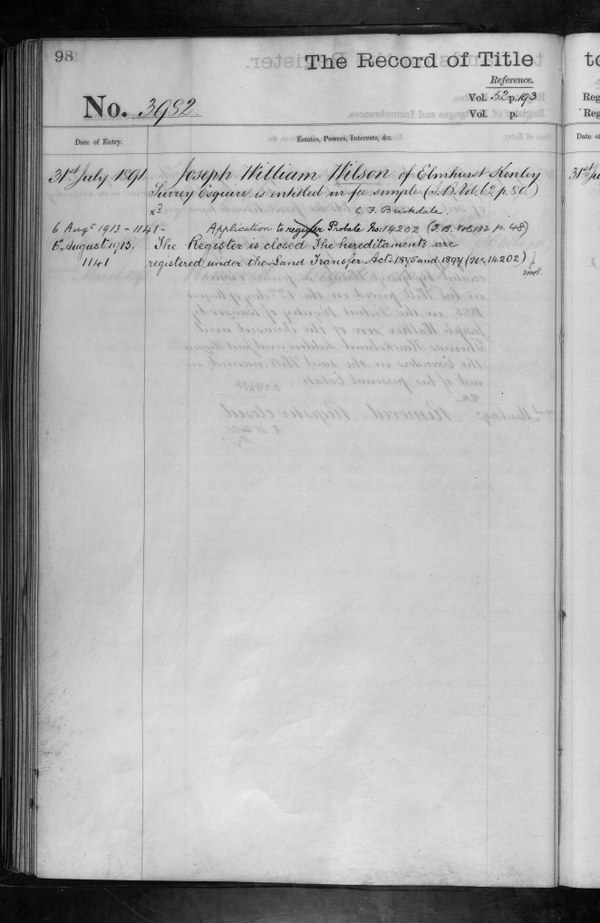 98
The Record of Title
Reference.
No. 3982.
Vol. 52 p. 193
Vol. p.
Date of Entry.
Estates, Powers, Interests, &c.
31st July 1891
Joseph William Wilson of Elmhurst Kenley
Surrey Esquire is entitled in fee simple (I.B. Vol. 62 p. 80)
C. F. Brickdale.
6 Augt 1913 - 1141 -
Application to register Probate No. 14202 (I.B. Vol. 182 p. 48)
6 August 1913.
The Register is closed The hereditaments are
1141
registered under the Land Transfer Acts 1875 and 1897 (No. 14202)
to
Reg
Reg
Date of
31st Ju